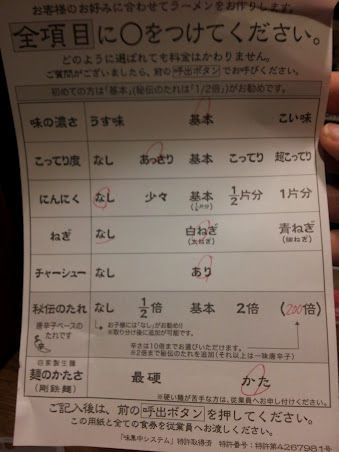 お客様のお好みに合わせてラーメンをお作りします。
全項目に○をつけてください。
どのように選ばれても料金はかわりません。
ご質問がございましたら、前の呼出ボタンでお呼びください。
初めての方は「基本」(秘伝のたれは「1/2倍」)がお勧めです。
味の濃さ うす味 基本 こい味
こってり度 なし あっさり 基本 こってり 超こってり
にんにく なし 少々 基本 1/2片分 1片分
(1/4片分)
ねぎ なし 白ねぎ 青ねぎ
(太ねぎ) (細ねぎ)
チャーシュー なし あり
秘伝のたれ なし 1/2倍 基本 2倍 (200倍)
唐辛子ベースのたれです
お子様には「なし」がお勧め!!
※取り分け後に追加が可能です。
辛さは10倍までお選びいただけます。
※2倍まで秘伝のたれを追加(それ以上は一味唐辛子)
自家製生麺
麺のかたさ 最硬 かた
(剛鉄麺)
※硬い麺が苦手な方は、従業員へお申し付けください。
ご記入後は、前の呼出ボタンを押してください。
この用紙と全ての食券を従業員へお渡しください。
「味集中システム」特許取得済 特許番号:特許第4267981号